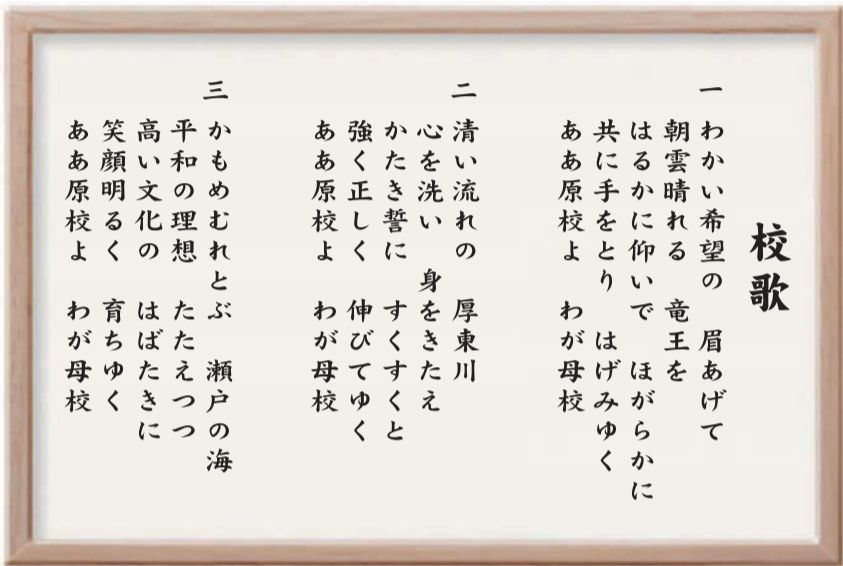 校歌
一 わかい希望の 眉あげて
朝雲晴れる 竜王を
はるかに仰いで ほがらかに
共に手をとり はげみゆく
ああ原校よ わが母校
二 清い流れの 厚東川
心を洗い 身をきたえ
かたき誓に すくすくと
強く正しく 伸びてゆく
ああ原校よ わが母校
三 かもめむれとぶ 瀬戸の海
平和の理想 たたえつつ
高い文化の はばたきに
笑顔明るく 育ちゆく
ああ原校よ わが母校